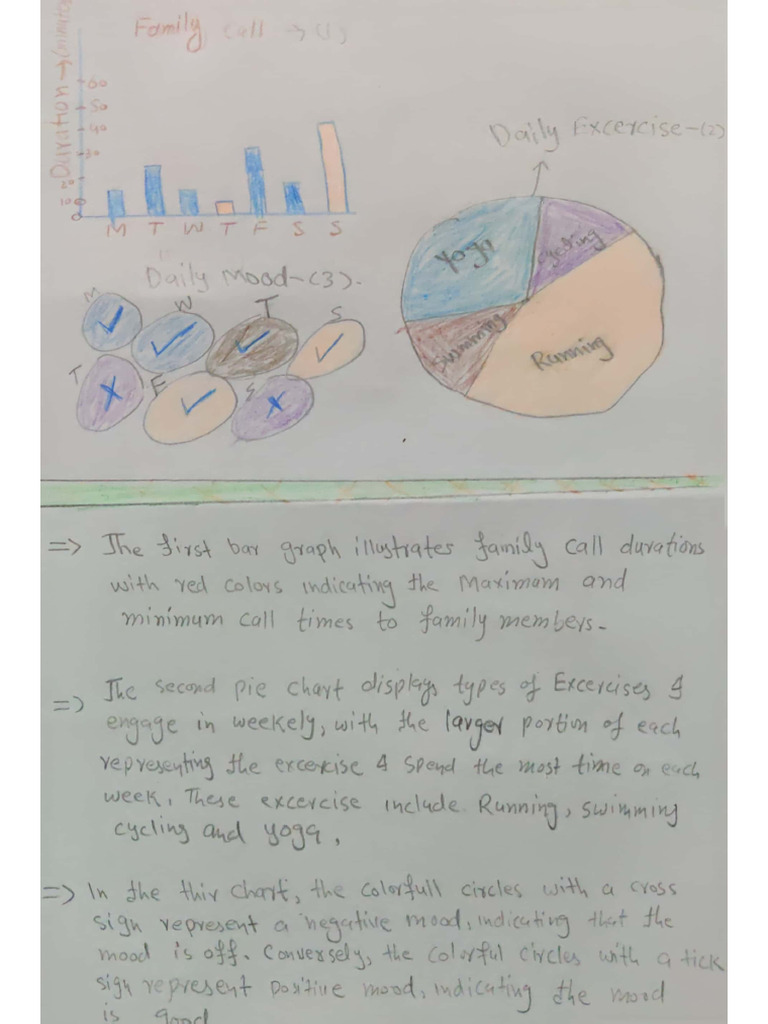 Family call → (1)
Duration → (minutes
60
50
40
30
20
10
0
M T W T F S S
Daily Excercise-(2)
Yoga
cycling
swimming
Running
Daily Mood-(3).
M W T S
T F S
=> The first bar graph illustrates family call durations
with red colors indicating the Maximum and
minimum call times to family members.
=> The second pie chart displays types of Excercises I
engage in weekely, with the larger portion of each
representing the excercise I spend the most time on each
week. These excercise include Running, swimming
cycling and yoga.
=> In the thir chart, the colorfull circles with a cross
sign represent a negative mood, indicating that the
mood is off. Conversely, the colorful circles with a tick
sign represent positive mood, indicating the mood
is good